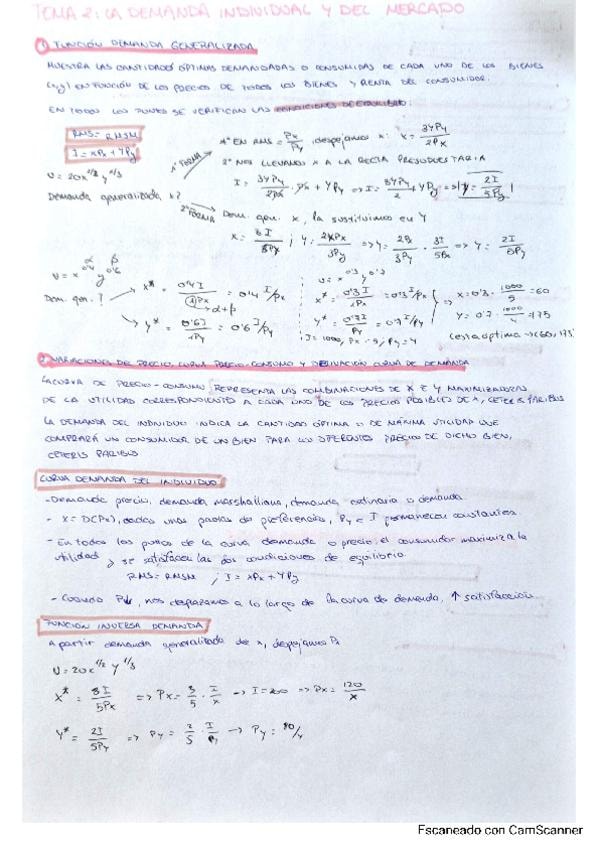 TEMA 2: LA DEMANDA INDIVIDUAL Y DEL MERCADO
① FUNCIÓN DEMANDA GENERALIZADA
MUESTRA LAS CANTIDADES ÓPTIMAS DEMANDADAS O CONSUMIDAS DE CADA UNO DE LOS BIENES
(x,y) EN FUNCIÓN DE LOS PRECIOS DE TODOS LOS BIENES Y RENTA DEL CONSUMIDOR.
EN TODOS LOS PUNTOS SE VERIFICAN LAS CONDICIONES DE EQUILIBRIO:
RMS = RMSM
I = xPx + YPy
1º EN RMS = Px/Py, despejamos x: x = 3YPy/2Px
1ª FORMA
2º NOS LLEVAMOS X A LA RECTA PRESUPUESTARIA
U = 20x^1/2 y^1/3
I = 3YPy/2Px · Px + YPy => I = 3YPy/2 + YPy => Y = 2I/5Py
Demanda generalizada x?
2ª FORMA
Dem. gen. x, la sustituimos en Y
Y = 2I/5Py
U = x^α y^β
x^0'4 y^0'6
U = x^0'3 y^0'7
Dem. gen.?
x* = 0'4I/1Px = 0'4 I/Px
α+β
x* = 0'3I/Px = 0'3 I/Px
x = 0'3 · 1000/5 = 60
y* = 0'6I/1Py = 0'6 I/Py
Y* = 0'7I/Py = 0'7 I/Py
Y = 0'7 · 1000/4 = 175
I = 1000, Px = 5, Py = 4
Cesta óptima → (60, 175)
2. VARIACIONES DEL PRECIO, CURVA PRECIO-CONSUMO Y DERIVACIÓN CURVA DE DEMANDA
LA CURVA DE PRECIO-CONSUMO, REPRESENTA LAS COMBINACIONES DE X E Y MAXIMIZADORAS
DE LA UTILIDAD CORRESPONDIENTE A CADA UNO DE LOS PRECIOS POSIBLES DE X, CETERIS PARIBUS
LA DEMANDA DEL INDIVIDUO INDICA LA CANTIDAD ÓPTIMA O DE MÁXIMA UTILIDAD QUE
COMPRARÁ UN CONSUMIDOR DE UN BIEN PARA LOS DIFERENTES PRECIOS DE DICHO BIEN,
CETERIS PARIBUS
CURVA DEMANDA DEL INDIVIDUO
- Demanda precio, demanda marshalliana, demanda ordinaria o demanda.
- X = D(Px), dadas unas pautas de preferencias, Py e I permanecen constantes
- En todos los puntos de la curva demanda o precio el consumidor maximiza la
utilidad y se satisfacen las dos condiciones de equilibrio.
RMS = RMSM ; I = xPx + YPy
- Cuando P↓, nos desplazamos a lo largo de la curva de demanda, ↑ satisfacción
FUNCIÓN INVERSA DEMANDA
A partir demanda generalizada de x, despejamos Px
U = 20x^1/2 y^1/3
X* = 3I/5Px => Px = 3/5 · I/x → I = 200 => Px = 120/x
Y* = 2I/5Py => Py = 2/5 · I/y → Py = 80/y
Escaneado con CamScanner